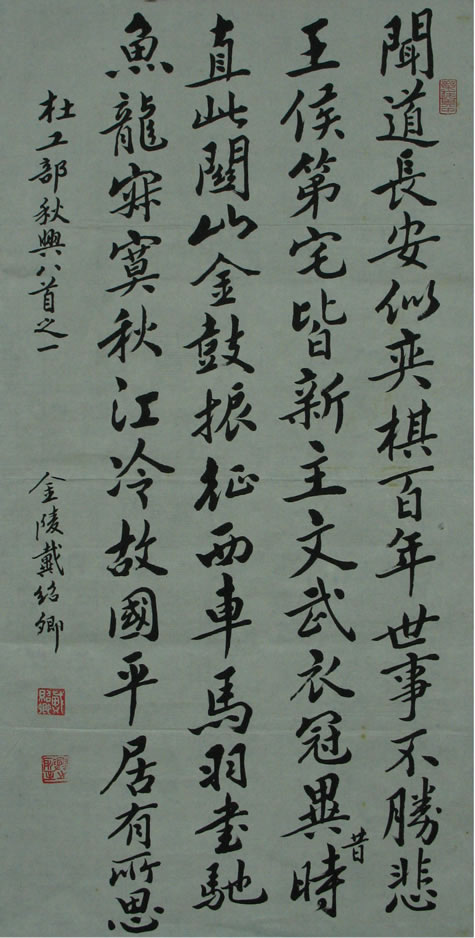 聞道長安似奕棋百年世事不勝悲
王侯第宅皆新主文武衣冠異昔時
直此關山金鼓振征西車馬羽書馳
魚龍寂寞秋江冷故國平居有所思
杜工部秋興八首之一
金陵戴紹卿